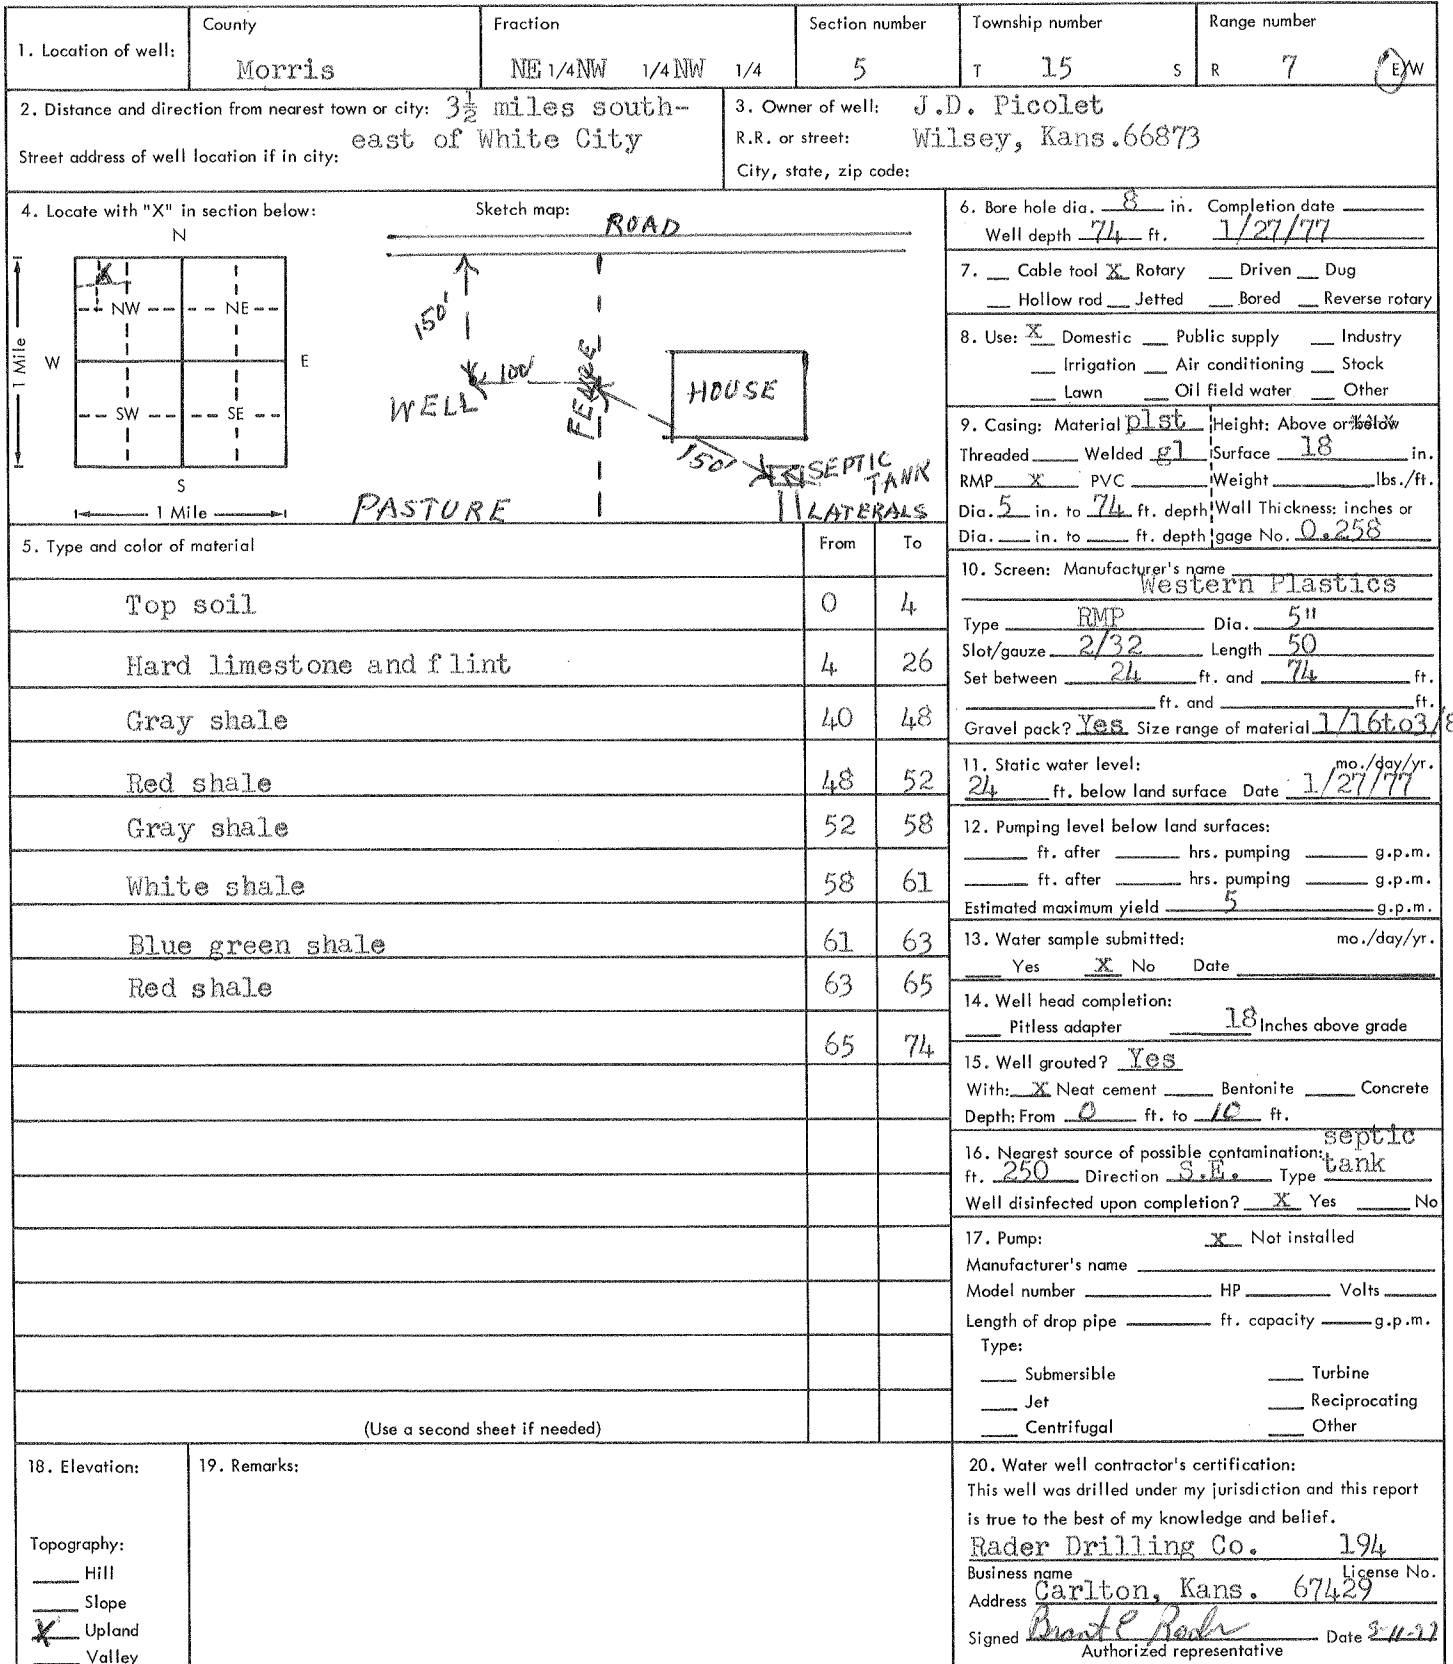 1. Location of well:
County
Morris
Fraction
NE 1/4 NW 1/4 NW 1/4
Section number
5
Township number
T 15 S
Range number
R 7 E/W
2. Distance and direction from nearest town or city: 3½ miles south-
east of White City
Street address of well location if in city:
3. Owner of well: J.D. Picolet
R.R. or street: Wilsey, Kans.66873
City, state, zip code:
4. Locate with "X" in section below:
N
X
NW NE
W E
1 Mile
SW SE
S
1 Mile
Sketch map:
ROAD
150'
100'
WELL
FENCE
HOUSE
150'
SEPTIC
TANK
LATERALS
PASTURE
5. Type and color of material From To
Top soil 0 4
Hard limestone and flint 4 26
Gray shale 40 48
Red shale 48 52
Gray shale 52 58
White shale 58 61
Blue green shale 61 63
Red shale 63 65
65 74
(Use a second sheet if needed)
6. Bore hole dia. 8 in. Completion date
Well depth 74 ft. 1/27/77
7. __ Cable tool X Rotary __ Driven __ Dug
__ Hollow rod __ Jetted __ Bored __ Reverse rotary
8. Use: X Domestic __ Public supply __ Industry
__ Irrigation __ Air conditioning __ Stock
__ Lawn __ Oil field water __ Other
9. Casing: Material plst Height: Above or below
Threaded ____ Welded gl Surface 18 in.
RMP X PVC ____ Weight ____ lbs./ft.
Dia. 5 in. to 74 ft. depth Wall Thickness: inches or
Dia. ___ in. to ___ ft. depth gage No. 0.258
10. Screen: Manufacturer's name
Western Plastics
Type RMP Dia. 5"
Slot/gauze 2/32 Length 50
Set between 24 ft. and 74 ft.
____ ft. and ____ ft.
Gravel pack? Yes Size range of material 1/16to3/8
11. Static water level: mo./day/yr.
24 ft. below land surface Date 1/27/77
12. Pumping level below land surfaces:
____ ft. after ____ hrs. pumping ____ g.p.m.
____ ft. after ____ hrs. pumping ____ g.p.m.
Estimated maximum yield 5 g.p.m.
13. Water sample submitted: mo./day/yr.
____ Yes X No Date ____
14. Well head completion:
____ Pitless adapter 18 Inches above grade
15. Well grouted? Yes
With: X Neat cement ____ Bentonite ____ Concrete
Depth: From 0 ft. to 10 ft.
16. Nearest source of possible contamination: septic
ft. 250 Direction S.E. Type tank
Well disinfected upon completion? X Yes ____ No
17. Pump: X Not installed
Manufacturer's name ____
Model number ____ HP ____ Volts ____
Length of drop pipe ____ ft. capacity ____ g.p.m.
Type:
____ Submersible ____ Turbine
____ Jet ____ Reciprocating
____ Centrifugal ____ Other
18. Elevation:
Topography:
____ Hill
____ Slope
X Upland
____ Valley
19. Remarks:
20. Water well contractor's certification:
This well was drilled under my jurisdiction and this report
is true to the best of my knowledge and belief.
Rader Drilling Co. 194
Business name License No.
Address Carlton, Kans. 67429
Signed Date
Authorized representative